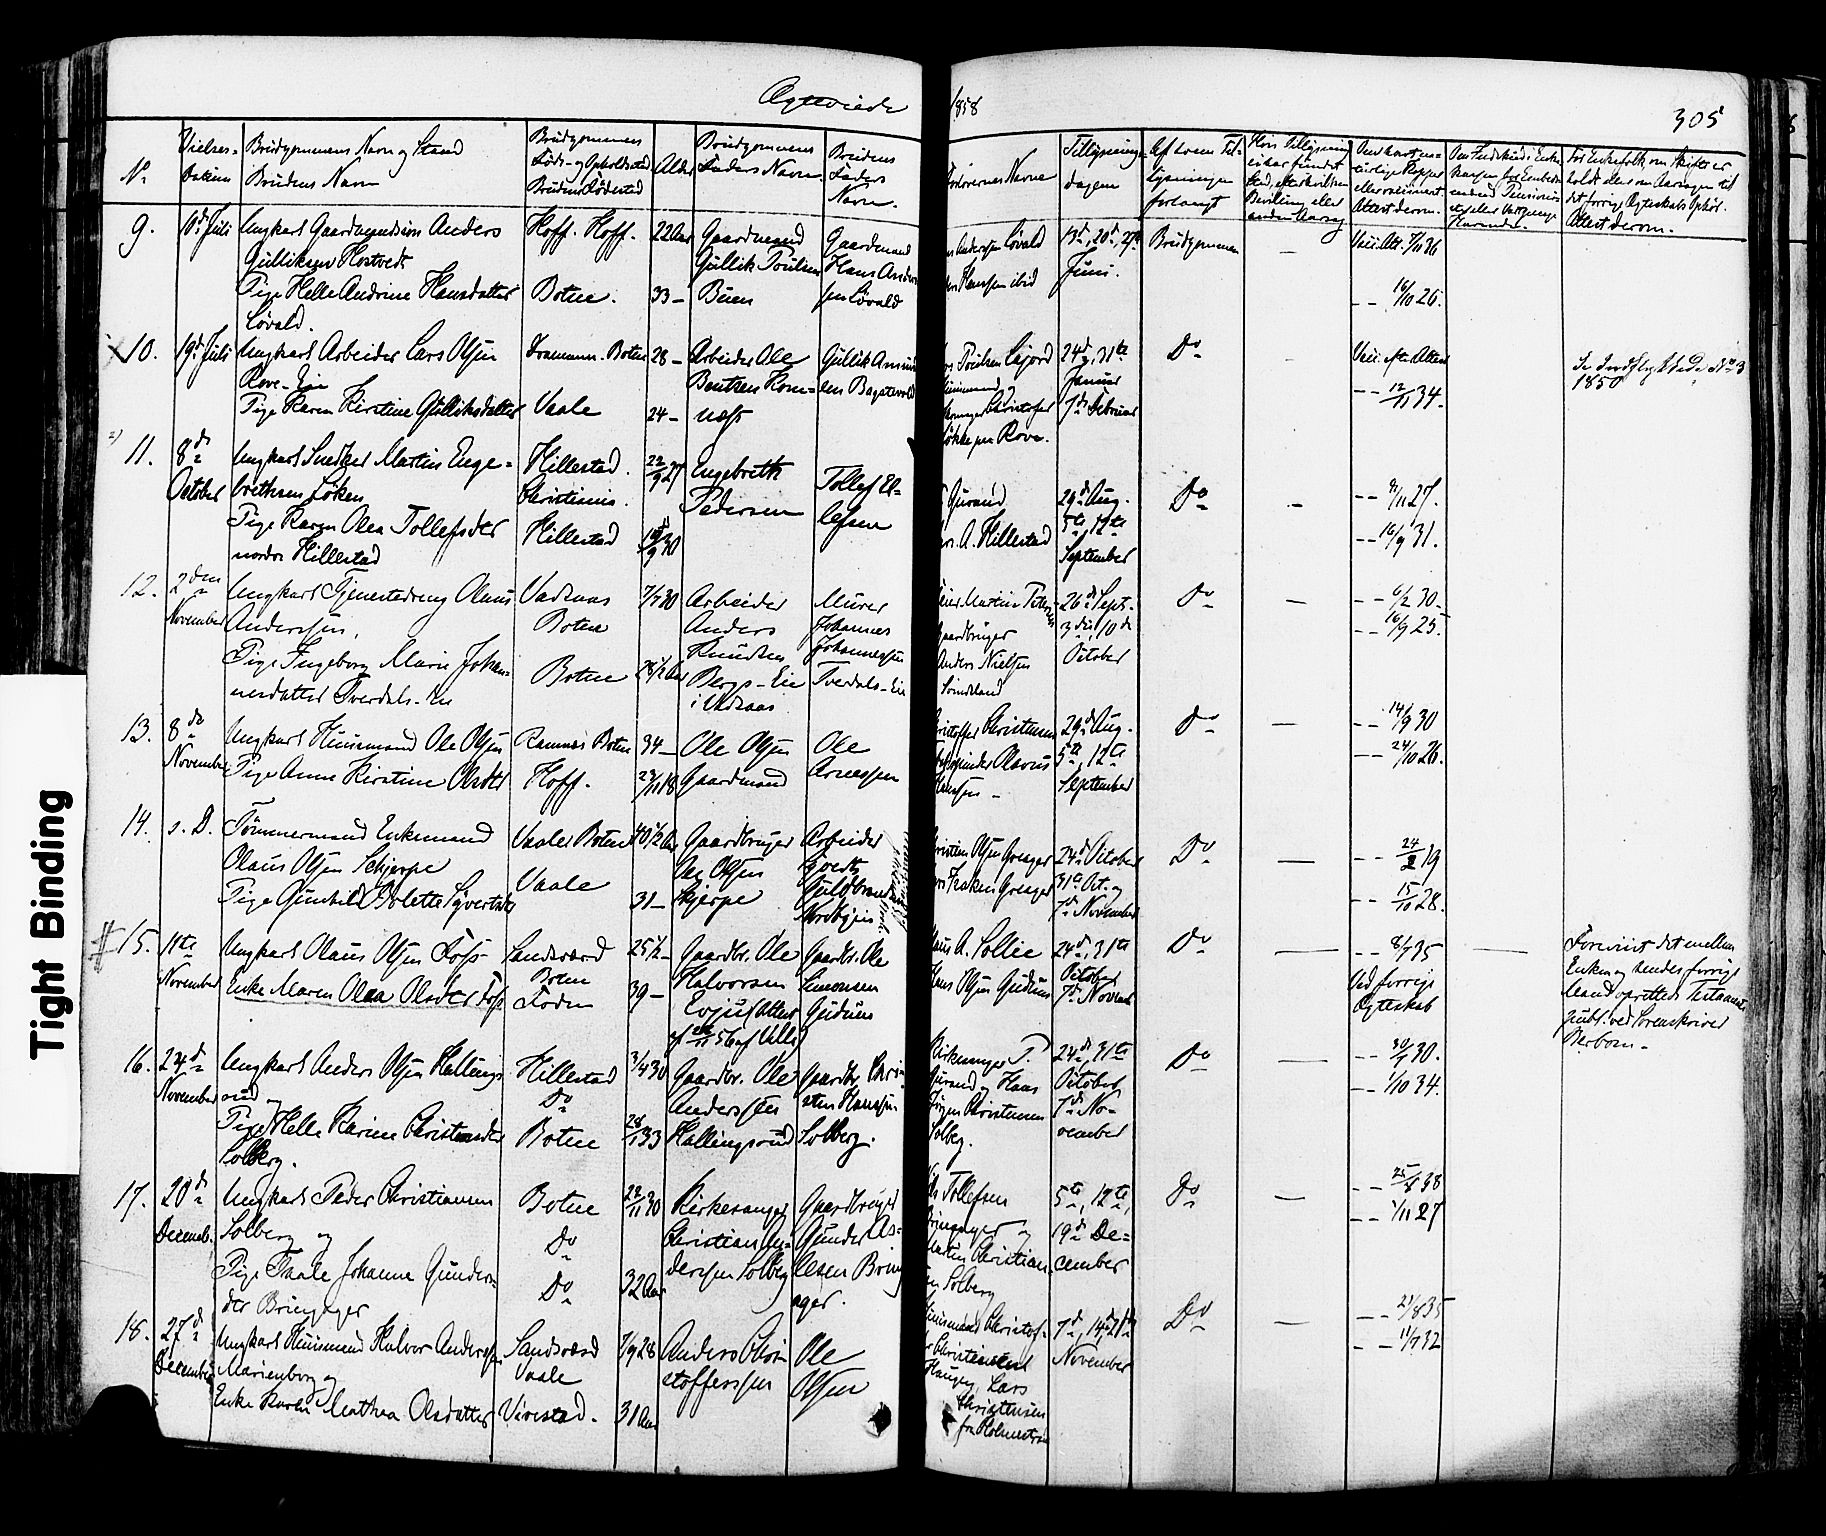 Tight Binding
Ægteviede
1858
305
No
Vielses-
Datum
Brudgommens Navn og Stand
Brudens Navn
Brudgommens
Føde- og Opholdssted
Brudens Fødested
Alder
Brudgommens
Faders Navn
Brudens
Faders
Navn.
Forlovernes Navne
Tillysnings-
dagen
Af hvem Til-
lysningen
forlangt
9. 10de Juli
Ungkarl Gaardmandssøn Anders
Gulliksen Hostvedt
Pige Helle Andrine Hansdatter
Løvald.
Hoff. Hoff.
Botne.
22 Aar
33 -
Gaardmand
Gullik Poulsen
Buen
Gaardmand
Hans Ander-
sen Løvald
Andersen Løvald
Hansen ibid
13de, 20de, 27de
Juni.
Brudgommen
-
Vacc. Att.
16/10 26.
10. 19de Juli
Ungkarl Arbeider Lars Olsen
Rove-Eie
Pige Karen Kirstine Gulliksdatter
Botne
Vaale
28 -
24 -
Arbeider Ole
Bentsen Kom-
næs
Gullik Amund
sen
Poulsen
Christofer
Rove.
24de, 31te
Januar
7de Februar
Do
-- 12/11 34.
1850
11. 8de
October
Ungkarl Snedker Martin Enge-
brethsen Løken
Pige Karen Olea Tollefsdtr
nordre Hillestad
Hillestad.
Christiania.
Hillestad
22/9 27
Engebreth
Pedersen
Tollef El-
lefsen
Gurand
A. Hillestad
29de Aug.
5te, 12te
September
Do
-
-- 9/11 27.
-- 16/9 31.
12. 2den
November
Ungkarl Tjenestedreng Olaus
Anderssen,
Pige Ingeborg Marie Johan-
nesdatter Tverdals-Eie
Vadsaas
Botne
Botne
7/7 30
28 1/2 Aar
Arbeider
Anders
Knudsen
Bergs-Eie
i Vadsaas
Murer
Johannes
Johannessen
Tverdals-Eie
Martin Peter
Gaardbruger
Anders Nielsen
26de Sept.
3die, 10de
October
Do
-
-- 6/2 30.
-- 16/9 25.
13. 8de
November
Ungkarl Huusmand Ole Olsen
Pige Anne Kirstine Olsdtr
Ramnæs Botne
Hoff.
34 -
Ole Olsen
Gaardmand
Ole
Arnessen
Christofer Christensen
Olavus
Hanssen -
29de Aug.
5te, 12te
September
Do
-
-- 14/9 30
-- 24/10 26.
14. s. D.
Tømmermand Enkemand
Olaus Olsen Skjerpe
Pige Gunhild Bolette Syvertsdtr
Vaale Botne
Vaale
40 1/2 Aar
31 -
Gaardbruger
Olsen
Skjerpe
Arbeider
Syvert
Guldbrandsen
Nordbyeie
Christen Olsen Greager
Greager
24de October
31te Oct. og
7de November
Do
-
-- 24/2 19
-- 15/10 28.
15. 11te
November
Ungkarl Olaus Olsen Foss
Enke Maren Olea Olsdtr Foss
Sandsværd
Botne
Foden
25 1/2 -
39 -
Gaardbr. Ole
Halvorsen
Gaardbr. Ole
Simonsen
Gudum
A. Sollie
Hans Olsen Gudum
24de, 31te
October
7de Novemb.
Do
-
-- 8/7 35
Ved forrige
Ægteskab
-
Forevist det mellem
Enken og hendes forrige
Mand oprettede Testament
publ. ved Sorenskriver
Nerbom -
16. 24de
November
Ungkarl Anders Olsen Hallings-
rud og
Pige Helle Karine Christensdtr
Solberg.
Hillestad
Do
Botne
3/4 30
28/1 33
Gaardbr. Ole
Anderssen
Hallingsrud
Gaardbr. Chri-
sten Hanssen
Solberg.
Kirkesanger T.
Gurand og Hans
Jørgen Christensen
Solbeg.
24de, 31te
October
7de No-
vember
Do
-
-- 30/5 30.
-- 1/10 34.
17. 20de
Decemb.
Ungkarl Peder Christiansen
Solberg og
Pige Taale Johanne Gunders-
dtr Bringager
Botne
Do
Do
22/11 30
32 Aar
Kirkesanger
Christian An-
dersen Solberg
Gaardbruger
Gunder As-
lesen Bring
ager.
Tollefsen
Bringager og
Martin Christian-
sen Solberg
5te, 12te,
19de De-
cember
Do
-
-- 25/8 38
-- 1/11 27
18. 27de
December
Ungkarl Huusmand Halvor Anderssen
Marienborg og
Enke Karen Mathea Olsdatter
Sandsværd
Vaale
Vivestad.
7/9 28
31 Aar
Anders Chri-
stofferssen
Ole
Olsen
Huusmand Christof-
fer Christensen
Haugen, Lars
Christensen
fra Holmestrand
7de, 14de, 21de
November
Do
-
-- 21/8 35
-- 11/7 32